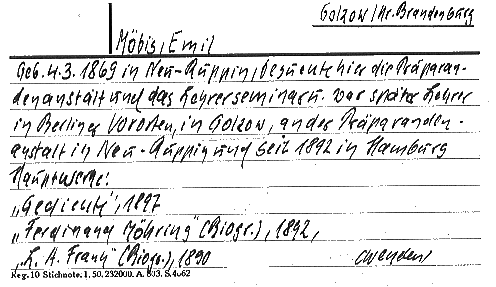 Golzow/Kr. Brandenburg
Möbis, Emil
Geb. 4.3.1869 in Neu-Ruppin, besuchte hier die Präparan-
denanstalt und das Lehrerseminar u. war später Lehrer
in Berliner Vororten, in Golzow, an der Präparanden-
anstalt in Neu-Ruppin und seit 1892 in Hamburg
Hauptwerke:
„Gedichte", 1897
„Ferdinand Möhring" (Biogr.), 1892,
(Biogr.), 1890
(wenden)
Reg. 10 Stichnote. 1, 50, 232000. A. 803. S. 4062